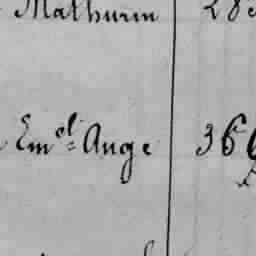 Mathurin
Em.el Ange 36